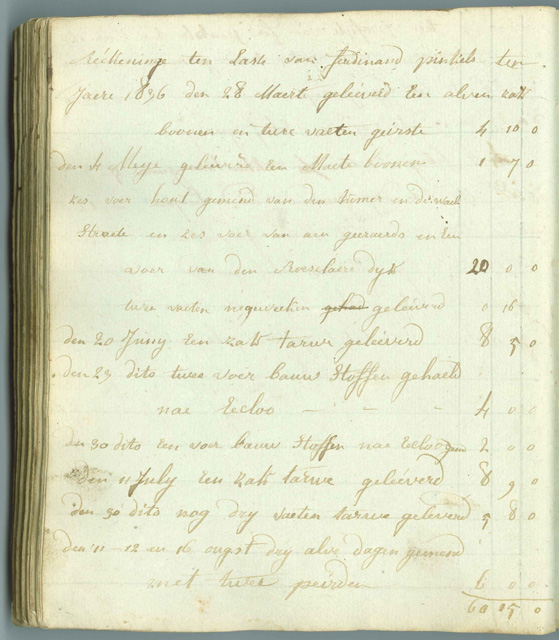 Rékeninge ten Laste van ferdinand pinkels ten
Jaere 1836 den 28 Maert geleéverd Een alven zak
boonen en twee vaeten geirste 4 10 0
den 4 Meye geleéverd Een Maete boonen 1 7 0
zes voer hout gemend van den
Straete en zes voer van aen geeraerds en Een
voer van den Roeselaere dyk 20 0 0
twee vaeten geleéverd 0 16
den 20 Juny Een zak tarwe geleéverd 8 5 0
den 23 dito twee voer bauw Stoffen gehaeld
nae Eecloo — — — 4 0 0
den 30 dito Een voer bauw Stoffen nae Eecloo 2 0 0
den 11 July Een zak tarwe geleéverd 8 9 0
den 30 dito nog dry vaeten tarwe geleverd 5 8 0
den 11 – 12 en 16 ougst dry alve dagen gemend
met twee peirden 6 0 0
60 15 0